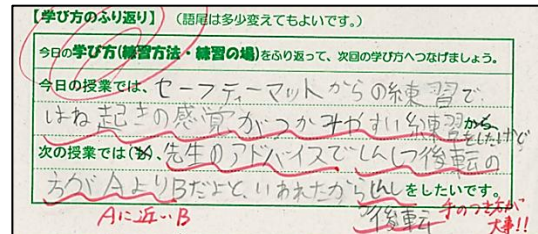 【学び方のふり返り】（語尾は多少変えてもよいです。）
今日の学び方(練習方法・練習の場)をふり返って、次回の学び方へつなげましょう。
今日の授業では、セーフティーマットからの練習で
はね起きの感覚がつかみやすい練習をしたけど
次の授業では(も)、先生のアドバイスでしんしつ後転の
方がAよりBだよと、いわれたからしんしつをしたいです。
Aに近いB
後転
手のつき方が
大事!!